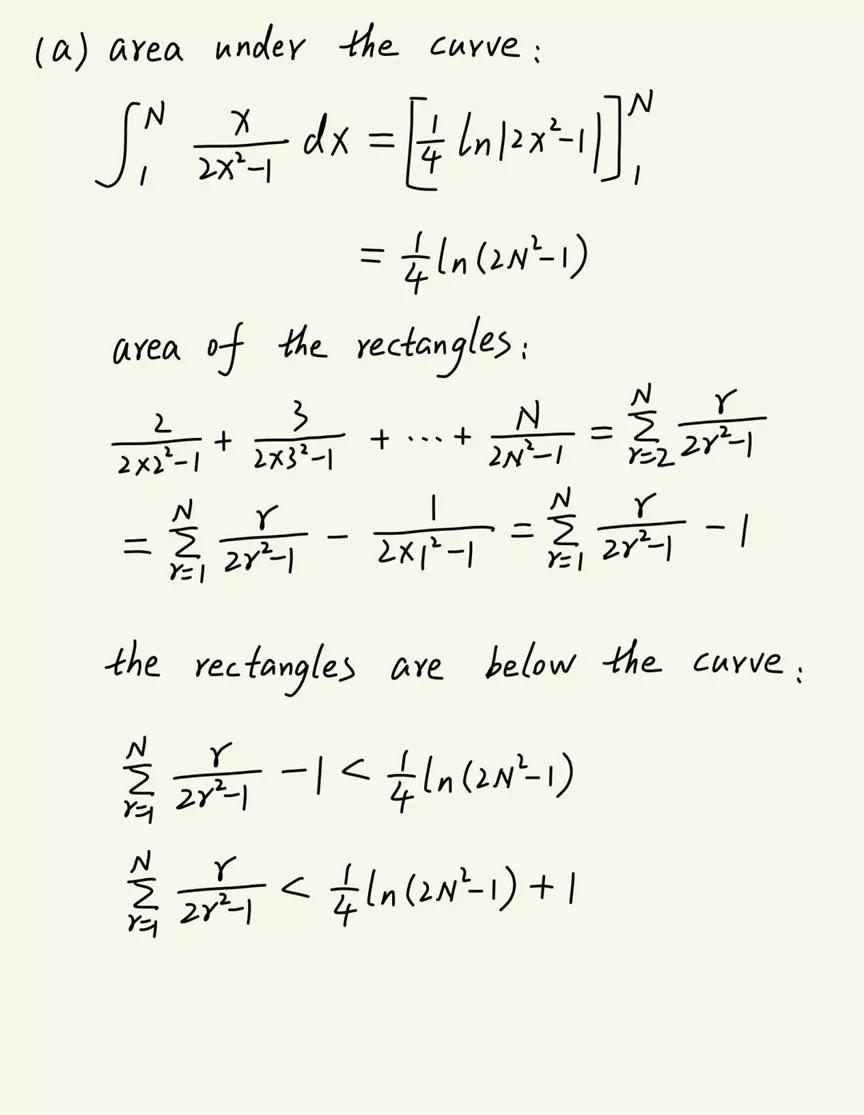 (a) area under the curve:
∫₁ᴺ x/(2x²-1) dx = [1/4 ln|2x²-1|]₁ᴺ
= 1/4 ln(2N²-1)
area of the rectangles:
2/(2×2²-1) + 3/(2×3²-1) + ... + N/(2N²-1) = Σ_{r=2}^{N} r/(2r²-1)
= Σ_{r=1}^{N} r/(2r²-1) - 1/(2×1²-1) = Σ_{r=1}^{N} r/(2r²-1) - 1
the rectangles are below the curve:
Σ_{r=1}^{N} r/(2r²-1) - 1 < 1/4 ln(2N²-1)
Σ_{r=1}^{N} r/(2r²-1) < 1/4 ln(2N²-1) + 1